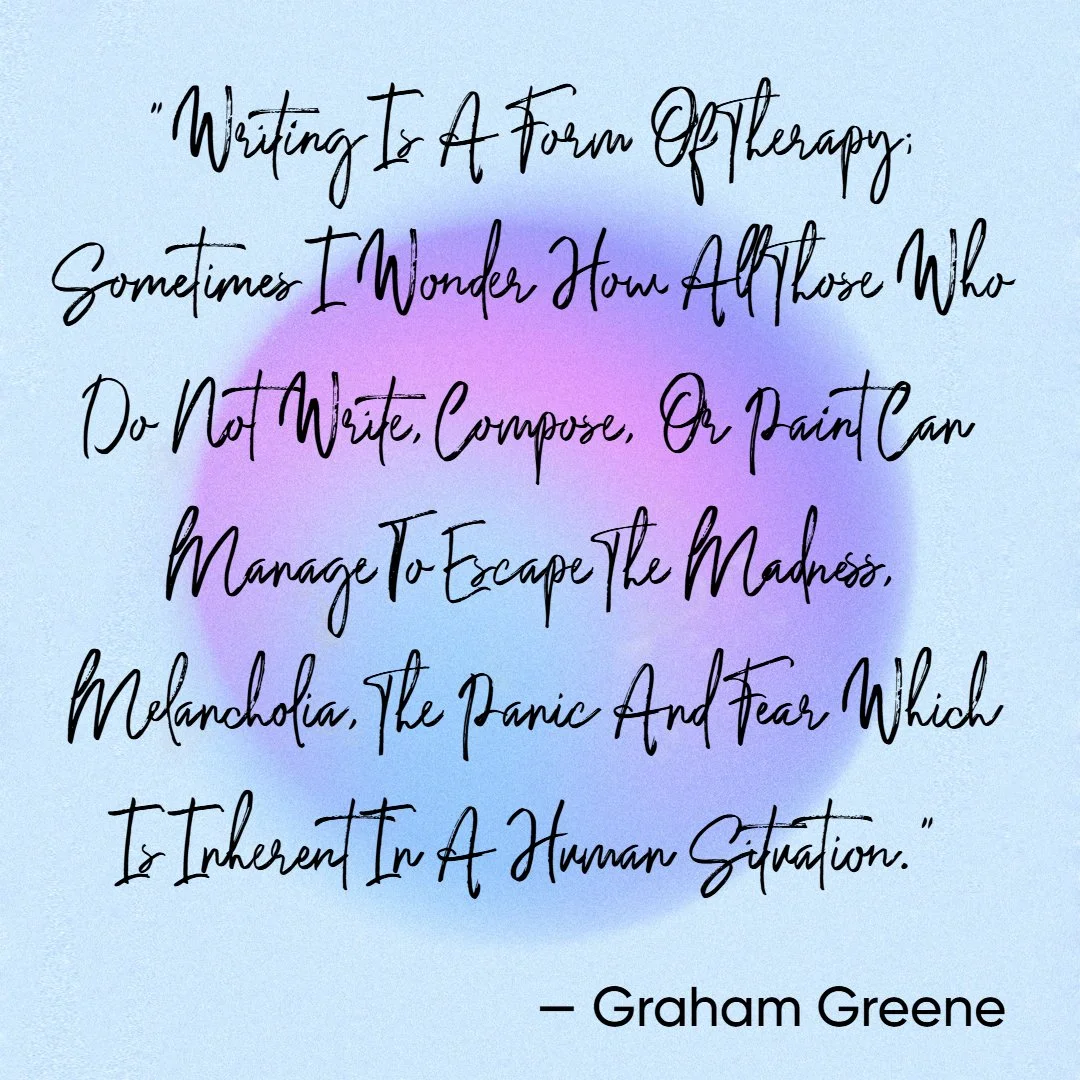 "Writing Is A Form Of Therapy;
Sometimes I Wonder How All Those Who
Do Not Write, Compose, Or Paint Can
Manage To Escape The Madness,
Melancholia, The Panic And Fear Which
Is Inherent In A Human Situation."
— Graham Greene